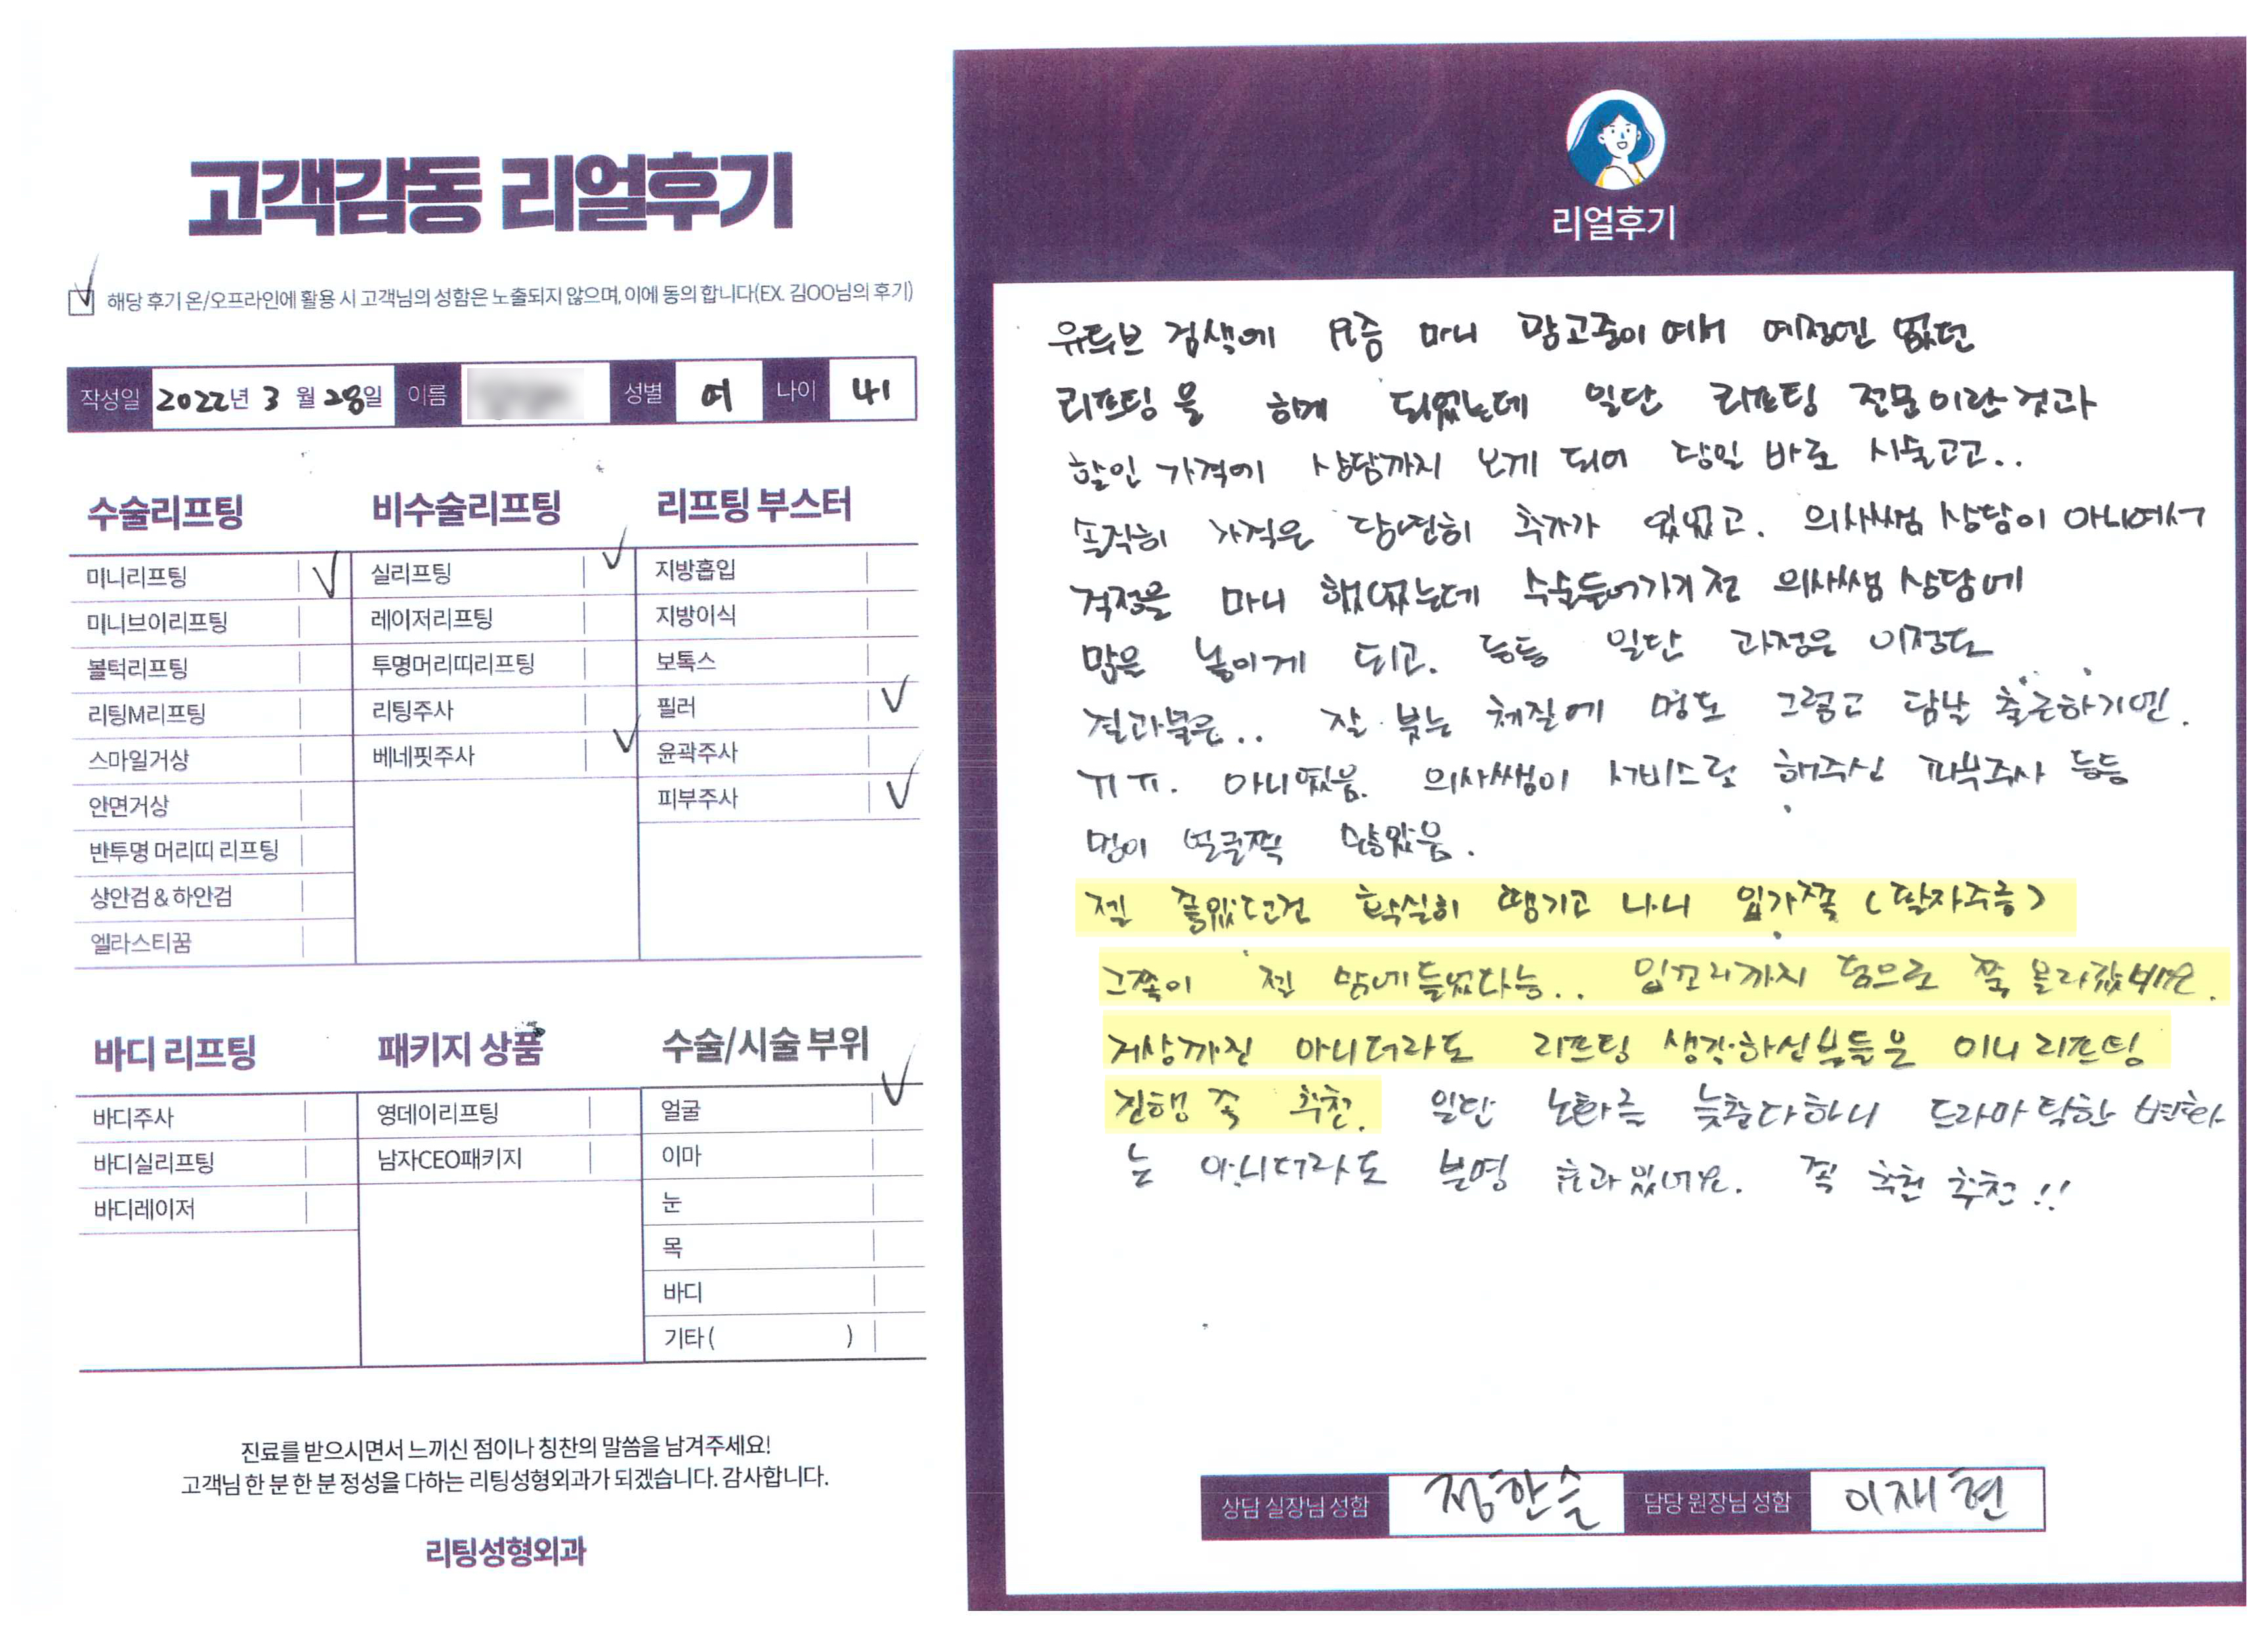 고객감동 리얼후기
해당 후기 온/오프라인에 활용 시 고객님의 성함은 노출되지 않으며, 이에 동의 합니다(EX. 김OO님의 후기)
작성일 2022년 3월 28일 이름 성별 여 나이 41
수술리프팅
미니리프팅
미니브이리프팅
볼턱리프팅
리팅M리프팅
스마일거상
안면거상
반투명 머리띠 리프팅
상안검 & 하안검
엘라스티꿈
비수술리프팅
실리프팅
레이저리프팅
투명머리띠리프팅
리팅주사
베네핏주사
리프팅 부스터
지방흡입
지방이식
보톡스
필러
윤곽주사
피부주사
바디 리프팅
바디주사
바디실리프팅
바디레이저
패키지 상품
영데이리프팅
남자CEO패키지
수술/시술 부위
얼굴
이마
눈
목
바디
기타 ( )
진료를 받으시면서 느끼신 점이나 칭찬의 말씀을 남겨주세요!
고객님 한 분 한 분 정성을 다하는 리팅성형외과가 되겠습니다. 감사합니다.
리팅성형외과
리얼후기
유튜브 검색에 요즘 마니 광고중이여서 예정엔 없던
리프팅을 하게 되었는데 일단 리프팅 전문이란것과
할인 가격에 상담까지 보게 되어 당일 바로 시술고고..
솔직히 가격은 당연히 추가가 있었고. 의사쌤 상담이 아니여서
걱정을 마니 했었는데 수술들어가기전 의사쌤 상담에
맘은 놓이게 되고. 등등 일단 과정은 이정도
결과물은.. 잘 붓는 체질에 멍도 그렇고 담날 출근하기엔.
ㅠㅠ. 아니였음. 의사쌤이 서비스로 해주신 피부주사 등등
멍이 얼굴쫙 않았음.
젤 좋았던건 확실히 땡기고 나니 입가쪽 (팔자주름)
그쪽이 젤 맘에들었다능.. 입꼬리까지 덤으로 쭉 올라갔네요.
거상까진 아니더라도 리프팅 생각하신분들은 미니 리프팅
진행 꼭 추천. 일단 노화를 늦춘다하니 드라마틱한 변화
는 아니더라도 분명 효과있네요. 꼭 추천 추천!!
상담 실장님 성함 정한슬 담당 원장님 성함 이재현